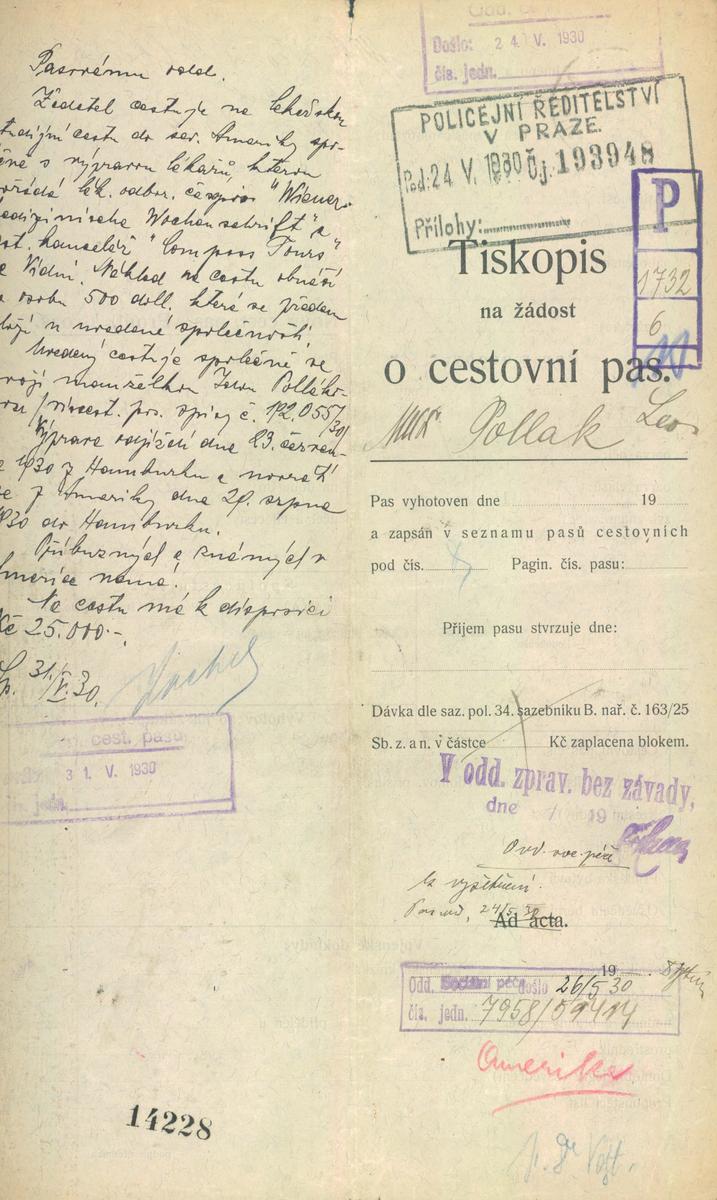 Pasovému odd.
Žadatel cestuje na lékařskou
studijní cestu do sev. Ameriky spo-
čně s výpravou lékařů, kterou
pořádá lék. odbor. časopis "Wiener
medizinische Wochenschrift" a
cest. kancelář "Compass Tours"
ve Vídni. Náklad na cestu obnáší
osobu 500 doll. které se předem
složí u uvedené společnosti.
Uvedený cestuje společně se
svojí manželkou Pollako-
vou č. 12.055/30/
Výprava odjíždí dne 23. červen-
ce 1930 z Hamburku a navrátí
se z Ameriky dne 29. srpna
1930 do Hamburku.
Příbuzných a známých v
Americe nemá.
Na cestu má k disposici
Kč 25.000.-.
31/V.30.
cest. pasů
31. V. 1930
čís. jedn.
14228
Došlo: 24. V. 1930
čís. jedn.
POLICEJNÍ ŘEDITELSTVÍ
V PRAZE.
Pod: 24 V. 1930 Čj. 193948
Přílohy:
P
1732
6
Tiskopis
na žádost
o cestovní pas.
MUDr Pollak Leo
Pas vyhotoven dne 19
a zapsán v seznamu pasů cestovních
pod čís. Pagin. čís. pasu:
Příjem pasu stvrzuje dne:
Dávka dle saz. pol. 34. sazebníku B. nař. č. 163/25
Sb. z. a n. v částce Kč zaplacena blokem.
V odd. zprav. bez závady,
dne / 19
Odd. soc. péče
k vyšetření.
24/5 30
Ad acta.
19
Odd. Sociální péče došlo 26/5 30
čís. jedn. 7958/59414
Amerika
Dr Vogt.